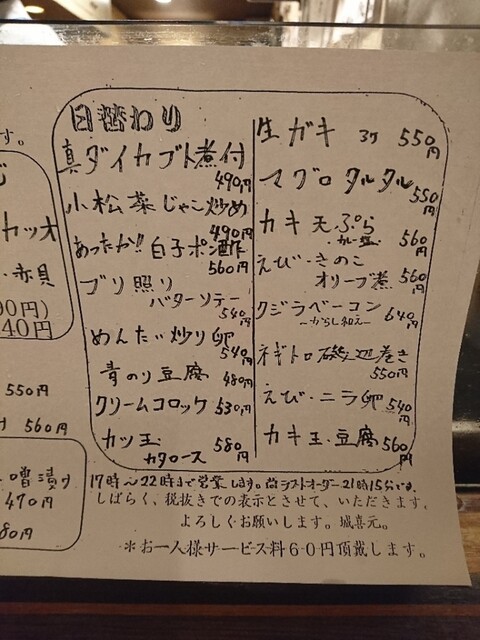 日替わり
真ダイカブト煮付
490円
小松菜じゃこ炒め
490円
あったか!!白子ポン酢
560円
ブリ照り
バターソテー
540円
めんたい炒り卵
540円
青のり豆腐 480円
クリームコロッケ 530円
カツ玉 580円
カタロース
生ガキ 3ケ 550円
マグロタルタル
550円
カキ天ぷら
560円
えび・きのこ
オリーブ煮 560円
クジラベーコン
640円
―からし和え―
ネギトロ磯辺巻き
550円
えび・ニラ卵 540円
カキ玉・豆腐 560円
17時~22時まで営業します。尚ラストオーダー21時15分です。
しばらく、税抜きでの表示とさせて、いただきます。
よろしくお願いします。城喜元。
*お一人様サービス料60円頂戴します。
す。
カツオ
・赤貝
90円)
40円
550円
560円
噌漬け
470円
80円